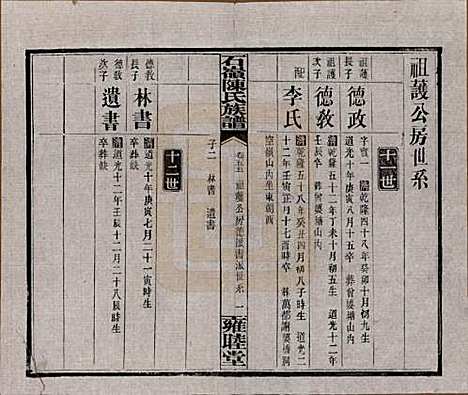 祖護公房世系
十一世
祖護長子
德政
字實一 清乾隆四十八年癸卯十月初九生
道光十年庚寅八月十五卒 葬曾婆塘山內
祖護次子
德教
清乾隆五十二年丁未十月初五生 道光十二年
壬辰卒 葬曾婆塘山內
配
李氏
清乾隆五十八年癸丑四月初八子時生 道光二
十二年壬寅正月十七酉時卒 林萬都謝婆橋洞
空嶺山內坐東朝西
子二 林書 遺書
石嶺陳氏族譜
祖護公房 派世系 一
雍睦堂
十二世
德教長子
林書
清道光十年庚寅七月二十一寅時生
卒葬缺
德教次子
遺書
清道光十二年壬辰十二月二十八辰時生
卒葬缺